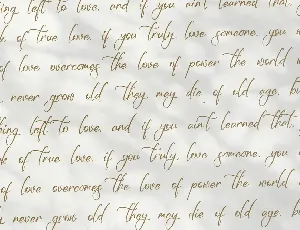 ing left to love. and if you ain't learned that.
k of true love. if you truly love someone. you w
of love overcomes the love of power the world w
never grow old they. mey. die of old age. bu
hing left to love. and if you ain't learned that.
k of true love. if you truly. love someone. you
of love overcomes the love of power the world
never grow old they. mey. die of old age. b